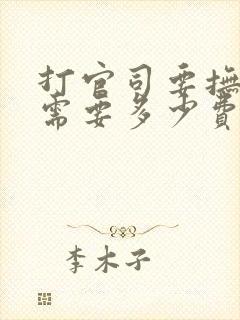 打官司要撫
需要多少費
李木子